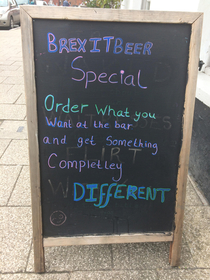 BREXIT BEER
Special
Order What you
Want at the bar
and get Something
Completley
DIFFERENT